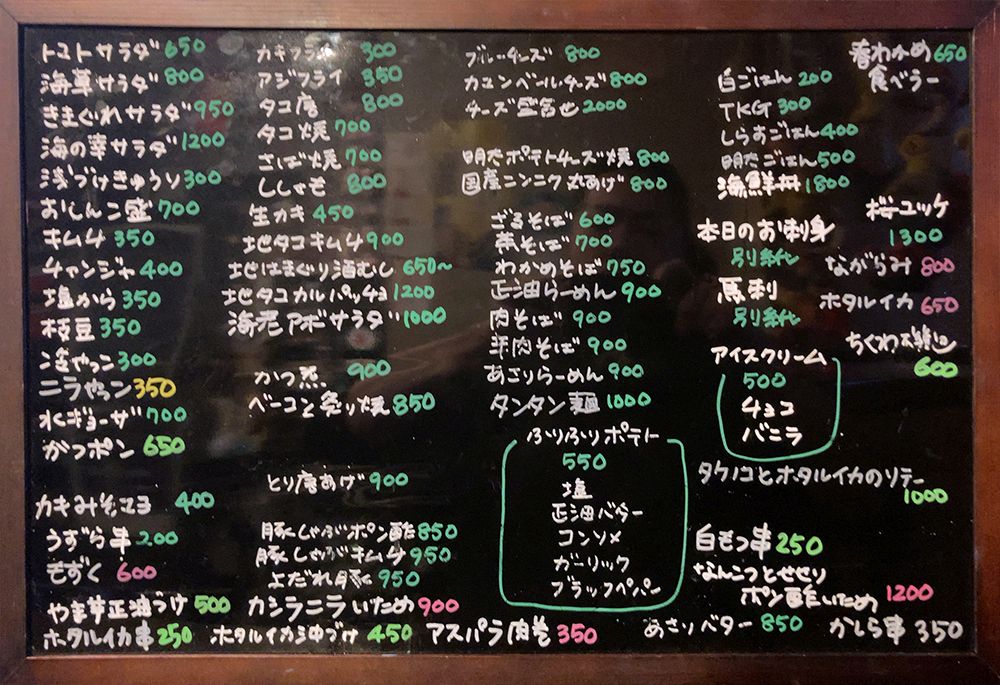 トマトサラダ 650
海草サラダ 800
きまぐれサラダ 950
海の幸サラダ 1200
浅づけきゅうり 300
おしんこ盛 700
キムチ 350
チャンジャ 400
塩から 350
枝豆 350
冷やっこ 300
ニラやっコ 350
水ギョーザ 700
がつポン 650
カキみそマヨ 400
うずら串 200
もずく 600
やま芋正油づけ 500
ホタルイカ串 250
カキフライ 300
アジフライ 350
タコ唐 800
タコ焼 700
さば焼 700
ししゃも 800
生カキ 450
地タコキムチ 900
地はまぐり酒むし 650~
地タコカルパッチョ 1200
海老アボサラダ 1000
かつ煮 900
ベーコン炙り焼 850
とり唐あげ 900
豚しゃぶポン酢 850
豚しゃぶキムチ 950
よだれ豚 950
カシラニラいため 900
ホタルイカ沖づけ 450
ブルーチーズ 800
カマンベールチーズ 800
チーズ盛合せ 2000
明太ポテトチーズ焼 800
国産ニンニク丸あげ 800
ざるそば 600
茶そば 700
わかめそば 750
正油らーめん 900
肉そば 900
羊肉そば 900
あさりらーめん 900
タンタン麺 1000
ふりふりポテト
550
塩
正油バター
コンソメ
ガーリック
ブラックペパー
アスパラ肉巻 350
白ごはん 200
TKG 300
しらすごはん 400
明太ごはん 500
海鮮丼 1800
本日のお刺身
別紙
馬刺
別紙
アイスクリーム
500
チョコ
バニラ
タケノコとホタルイカのソテー
1000
白もつ串 250
なんこつとせせり
ポン酢いため 1200
あさりバター 850
かしら串 350
春わかめ 650
食べラー
桜ユッケ
1300
ながらみ 800
ホタルイカ 650
ちくわ磯辺
600